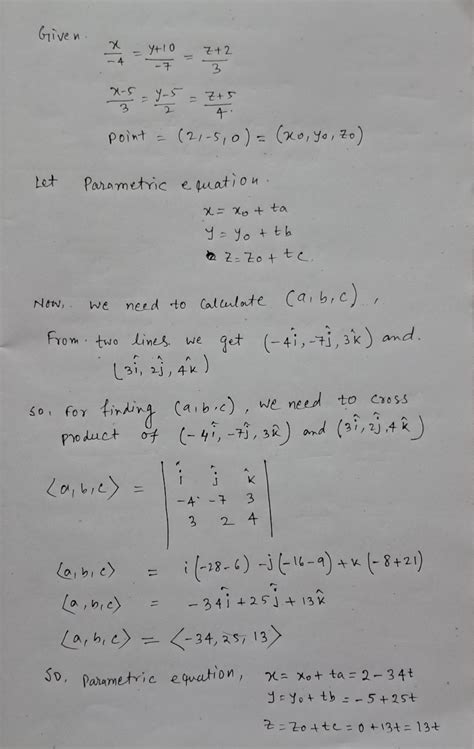 Given.
x/-4 = y+10/-7 = z+2/3
x-5/3 = y-5/2 = z+5/4.
point = (2,-5,0) = (x0, y0, z0)
Let Parametric equation.
x = x0 + ta
y = y0 + tb
z = z0 + tc.
Now, we need to calculate (a,b,c),
From two lines we get (-4î, -7ĵ, 3k̂) and.
(3î, 2ĵ, 4k̂)
so, for finding (a,b,c), we need to cross
product of (-4î, -7ĵ, 3k̂) and (3î, 2ĵ, 4k̂)
⟨a,b,c⟩ = | î ĵ k̂
-4 -7 3
3 2 4 |
⟨a,b,c⟩ = i(-28-6) -j(-16-9) +k(-8+21)
⟨a,b,c⟩ = -34î + 25ĵ + 13k̂
⟨a,b,c⟩ = ⟨-34, 25, 13⟩
So, Parametric equation, x = x0 + ta = 2 - 34t
y = y0 + tb = -5 + 25t
z = z0 + tc = 0 + 13t = 13t